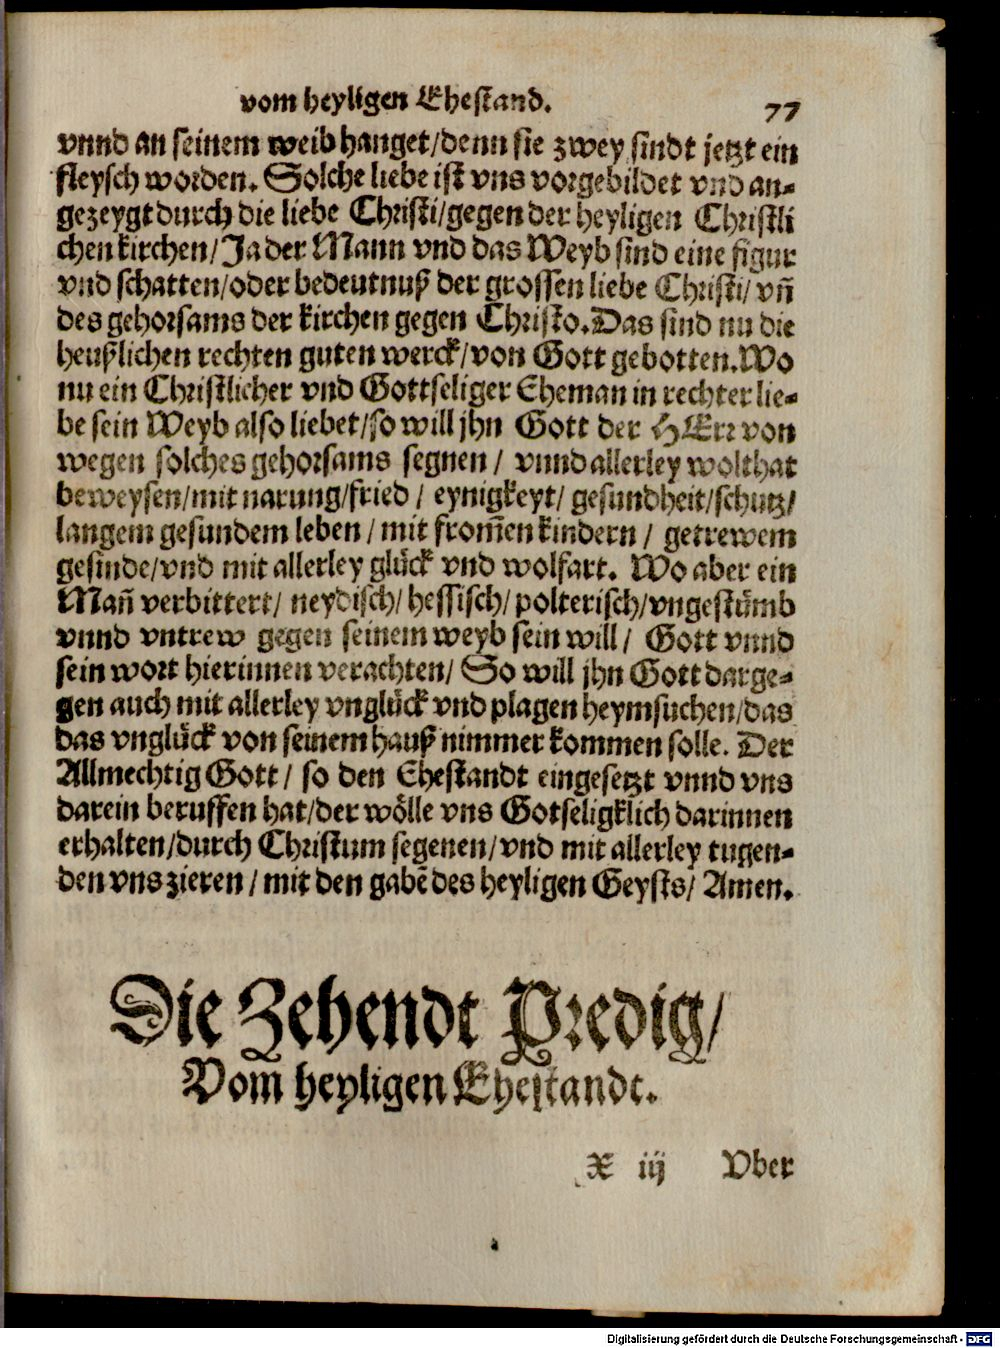 vom heyligen Ehestand. 77
vnnd an seinem weib hanget/denn sie zwey sindt jetzt ein
fleysch worden. Solche liebe ist vns vorgebildet vnd an-
gezeygt durch die liebe Christi/gegen der heyligen Christli
chen kirchen/Ja der Mann vnd das Weyb sind eine figur
vnd schatten/oder bedeutnuß der grossen liebe Christi/ vñ
des gehorsams der kirchen gegen Christo. Das sind nu die
heußlichen rechten guten werck/von Gott gebotten. Wo
nu ein Christlicher vnd Gottseliger Eheman in rechter lie-
be sein Weyb also liebet/so will jhn Gott der HErr von
wegen solches gehorsams segnen / vnnd allerley wolthat
beweysen/mit narung/fried / eynigkeyt/ gesundheit/schutz/
langem gesundem leben / mit from̃en kindern / getrewem
gesinde/vnd mit allerley glück vnd wolfart. Wo aber ein
Mañ verbittert/ neydisch/ hessisch/ polterisch/vngestümb
vnnd vntrew gegen seinem weyb sein will/ Gott vnnd
sein wort hierinnen verachten/ So will jhn Gott darge-
gen auch mit allerley vnglück vnd plagen heymsuchen/das
das vnglück von seinem hauß nimmer kommen solle. Der
Allmechtig Gott/ so den Ehestandt eingesetzt vnnd vns
darein beruffen hat/der wölle vns Gotseligklich darinnen
erhalten/durch Christum segenen/vnd mit allerley tugen-
den vns zieren / mit den gabẽ des heyligen Geysts/ Amen.
Die Zehendt Predig/
Vom heyligen Ehestandt.
X iij Vber
Digitalisierung gefördert durch die Deutsche Forschungsgemeinschaft - DFG